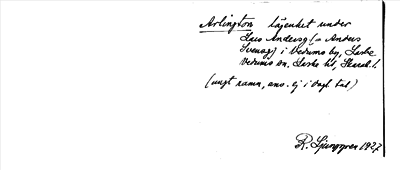 Arlington lägenhet under
Lars Andersg (= Anders
Svensg) i Vedums by, Laske
Vedums sn. Laske hd, Skarab. l.
(ungt namn, anv. ej i dagl. tal)
R. Ljunggren 1927